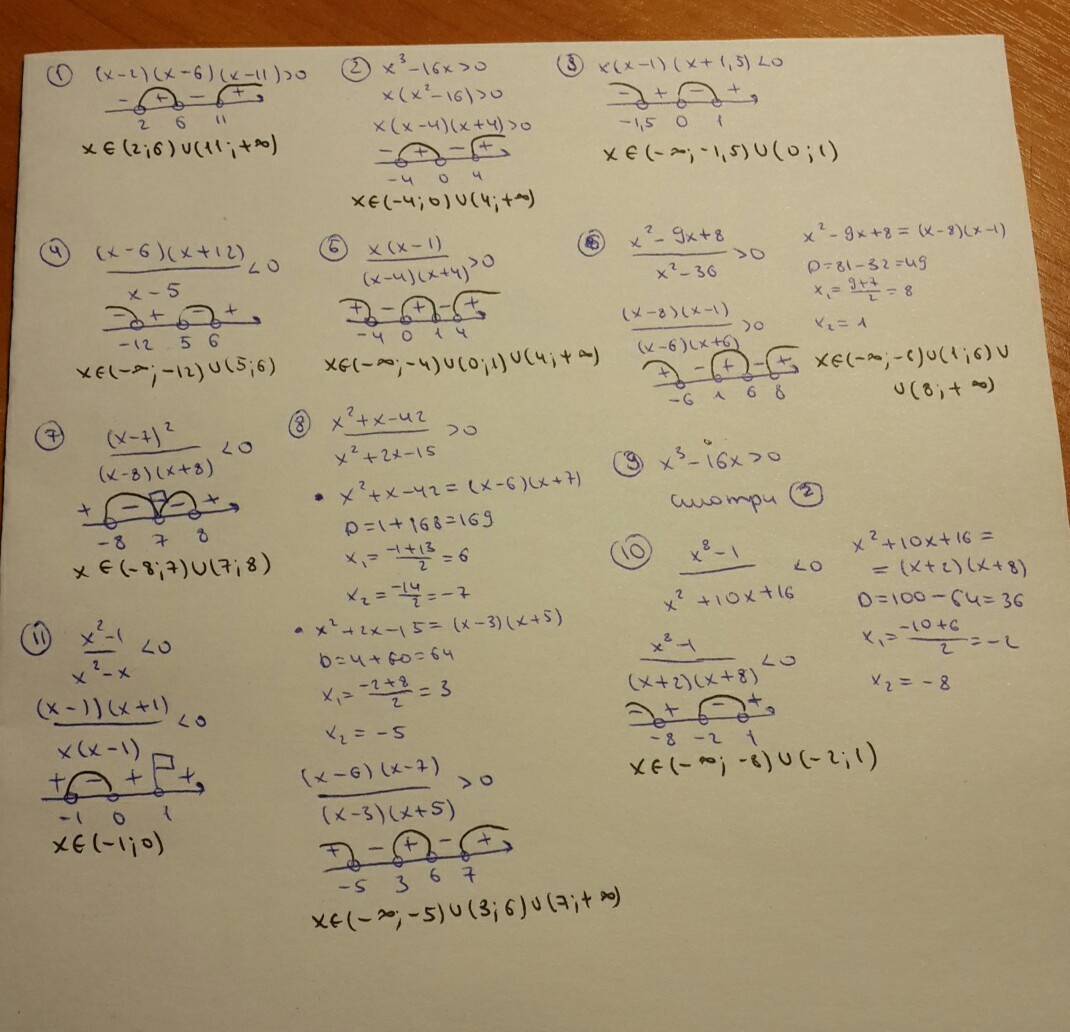 ① (x-2)(x-6)(x-11)>0
- + - +
2 6 11
x∈(2;6)∪(11;+∞)
② x³-16x>0
x(x²-16)>0
x(x-4)(x+4)>0
- + - +
-4 0 4
x∈(-4;0)∪(4;+∞)
③ x(x-1)(x+1,5)<0
- + - +
-1,5 0 1
x∈(-∞;-1,5)∪(0;1)
④ (x-6)(x+12)/(x-5)<0
- + - +
-12 5 6
x∈(-∞;-12)∪(5;6)
⑤ x(x-1)/((x-4)(x+4))>0
+ - + - +
-4 0 1 4
x∈(-∞;-4)∪(0;1)∪(4;+∞)
⑥ (x²-9x+8)/(x²-36)>0
(x-8)(x-1)/((x-6)(x+6))>0
+ - + - +
-6 1 6 8
x²-9x+8=(x-8)(x-1)
D=81-32=49
x₁=(9+7)/2=8
x₂=1
x∈(-∞;-6)∪(1;6)∪
∪(8;+∞)
⑦ (x-7)²/((x-8)(x+8))<0
+ - - +
-8 7 8
x∈(-8;7)∪(7;8)
⑧ (x²+x-42)/(x²+2x-15)>0
• x²+x-42=(x-6)(x+7)
D=1+168=169
x₁=(-1+13)/2=6
x₂=-14/2=-7
• x²+2x-15=(x-3)(x+5)
D=4+60=64
x₁=(-2+8)/2=3
x₂=-5
(x-6)(x-7)/((x-3)(x+5))>0
+ - + - +
-5 3 6 7
x∈(-∞;-5)∪(3;6)∪(7;+∞)
⑨ x³-16x>0
смотри ②
⑩ (x³-1)/(x²+10x+16)<0
(x³-1)/((x+2)(x+8))<0
- + - +
-8 -2 1
x∈(-∞;-8)∪(-2;1)
x²+10x+16=
=(x+2)(x+8)
D=100-64=36
x₁=(-10+6)/2=-2
x₂=-8
⑪ (x²-1)/(x²-x)<0
(x-1)(x+1)/(x(x-1))<0
+ - + +
-1 0 1
x∈(-1;0)